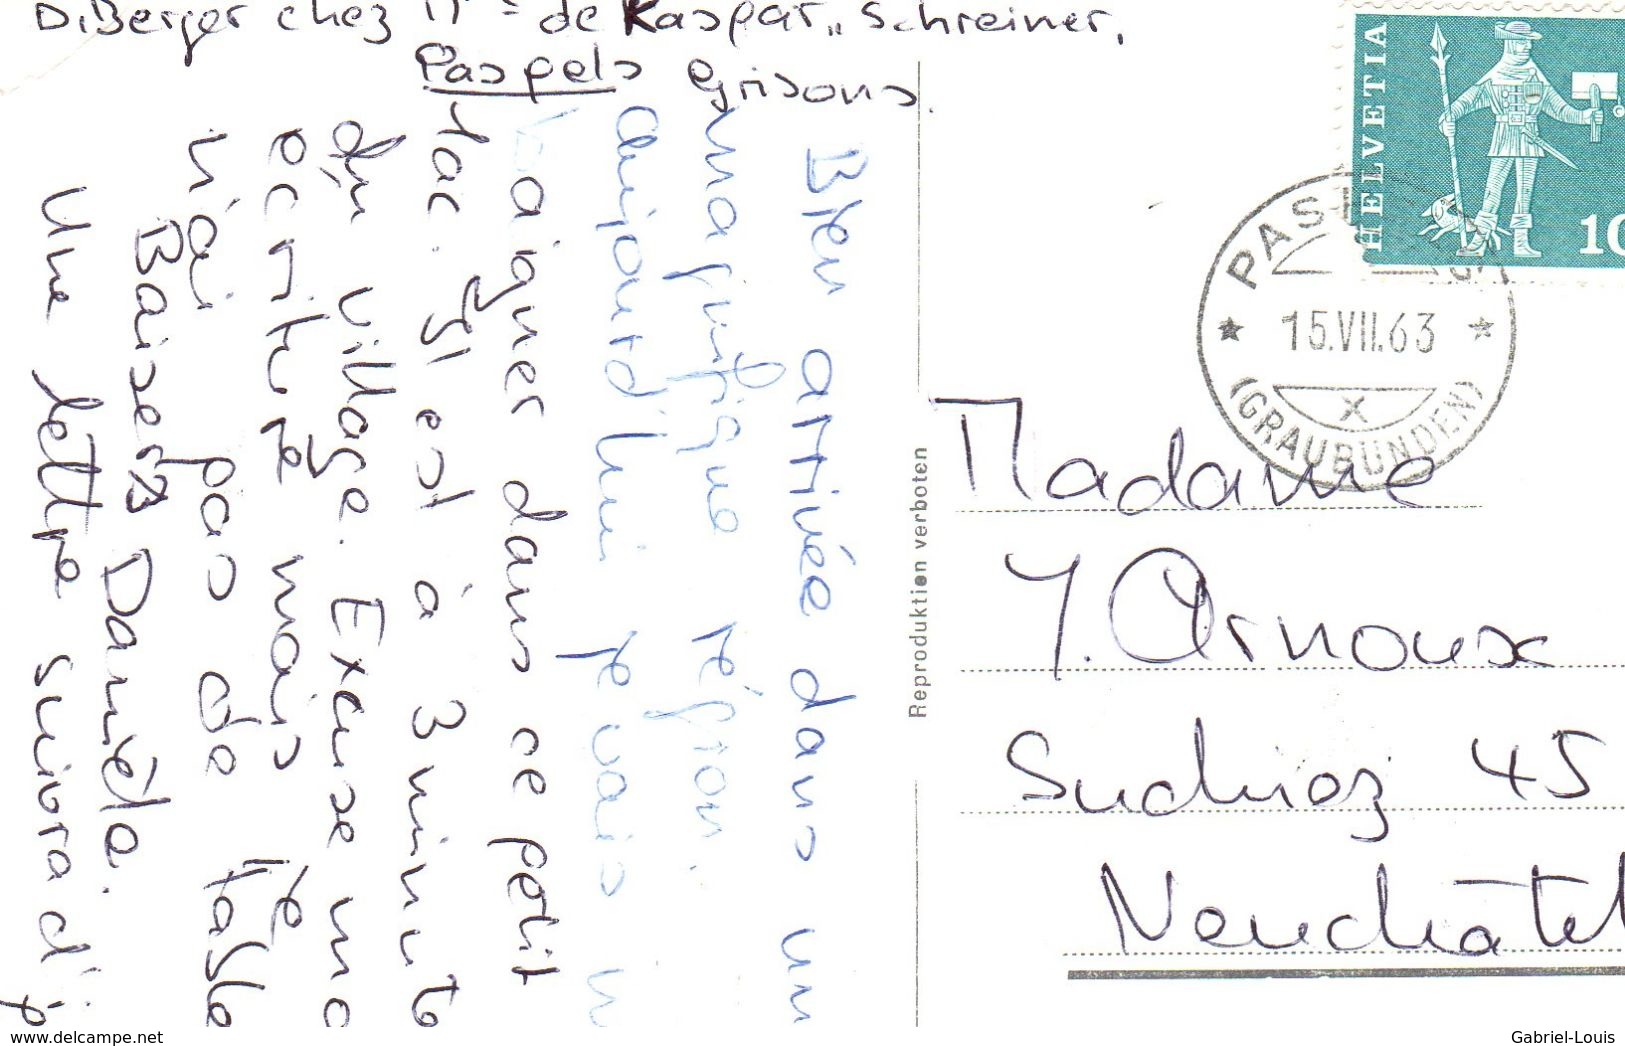 D. Berger chez Mme de Kaspar, Schreiner,
Paspels Grisons.
Bien arrivée dans un
magnifique région.
Aujourd'hui je vais m
baigner dans ce petit
lac. Il est à 3 minute
du village. Excuse mo
écriture mais je
n'ai pas de table
Baisers Danièle.
Une lettre suivra d'i
Reproduktion verboten
HELVETIA
10
PASPELS
15.VII.63
X
(GRAUBÜNDEN)
Madame
Y. Arnoux
Suchiez 45
Neuchâtel
www.delcampe.net
Gabriel-Louis